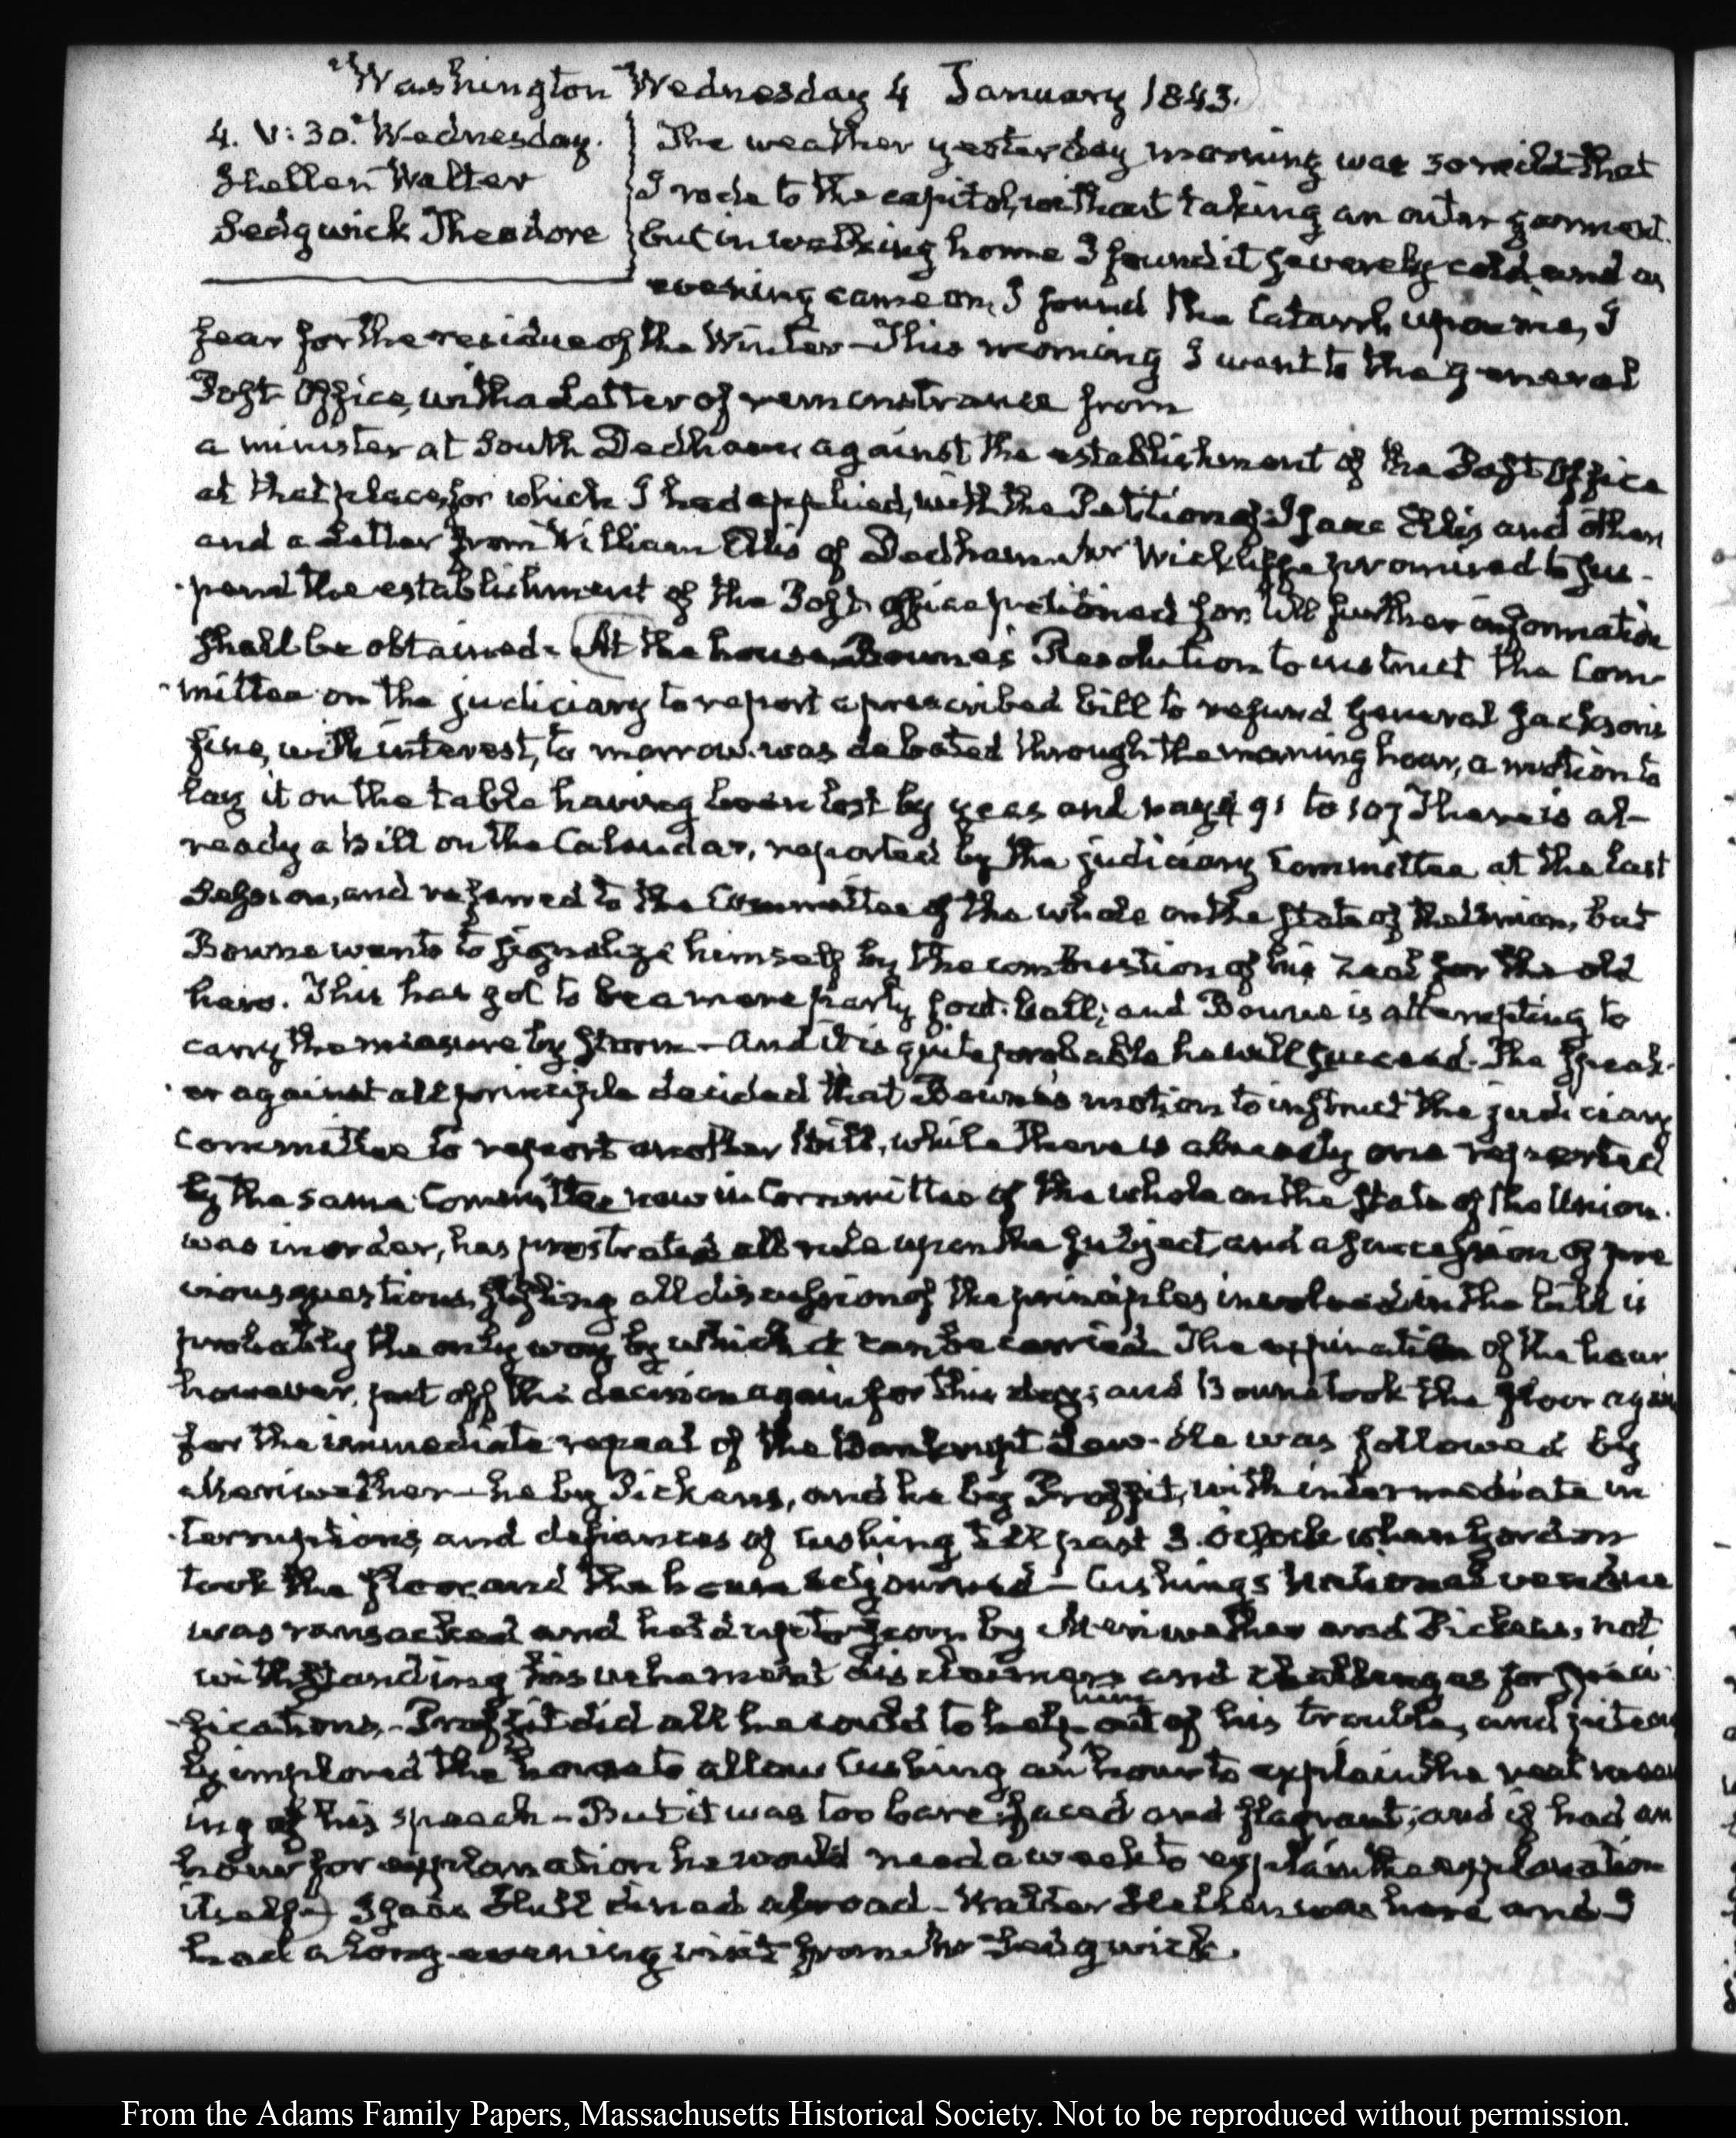 Washington Wednesday 4 January 1843.
4. V:30. Wednesday.
Hellen Walter
Sedgwick Theodore
The weather yesterday morning was so mild that
I rode to the capitol, without taking an outer garment.
but in walking home I found it severely cold, and as
evening came on, I found the Catarrh upon me, I
fear for the residue of the Winter – This morning I went to the general
Post Office, with a Letter of remonstrance from
a minister at South Dedham against the establishment of the Post Office
at that place, for which I had applied, with the Petition of Isaac Ellis and others
and a Letter from William Ellis of Dedham. Mr Wickliffe promised to sus-
pend the establishment of the Post office petitioned for, till further information
shall be obtained. At the house, Bowne's Resolution to instruct the Com-
mittee on the judiciary to report a prescribed bill to refund General Jackson's
fine, with interest, to morrow. was debated through the morning hour, a motion to
lay it on the table having been lost by yeas and nays 91 to 107 There is al-
ready a Bill on the Calendar, reported by the judiciary Committee at the last
Session, and referred to the Committee of the whole on the state of the Union, but
Bowne wants to signalize himself by the combustion of his zeal for the old
hero. This has got to be a mere party foot-ball; and Bowne is attempting to
carry the measure by storm – And it is quite probable he will succeed. The Speak-
er against all principle decided that Bowne's motion to instruct the judiciary
Committee to report another Bill, while there is already one reported
by the same Committee now in Committee of the whole on the state of the Union.
was in order, has prostrated all rule upon the subject, and a succession of pre
vious questions, stifling all discussion of the principles involved in the bill is
probably the only way by which it can be carried. The expiration of the hour
however, put off the decision again for this day; and Bowne took the floor again
for the immediate repeal of the Bankrupt Law. He was followed by
Meriwether – he by Pickens, and he by Proffit, with intermediate in
terruptions and defiances of Cushing till past 3. O'clock when Gordon
took the floor, and the house adjourned – Cushing's National vendue
was ransacked and held up to scorn by Meriwether and Pickens, not
withstanding his vehement disclaimers and challenges for speci-
fications. – Proffit did all he could to help him out of his trouble, and piteous
ly implored the house to allow Cushing an hour to explain the real mean
ing of his speech – But it was too barefaced and flagrant; and if had an
hour for explanation he would need a week to explain the explanation
itself – Isaac Hull dined abroad – Walter Hellen was here and I
had a long evening visit from Mr Sedgwick.
From the Adams Family Papers, Massachusetts Historical Society. Not to be reproduced without permission.